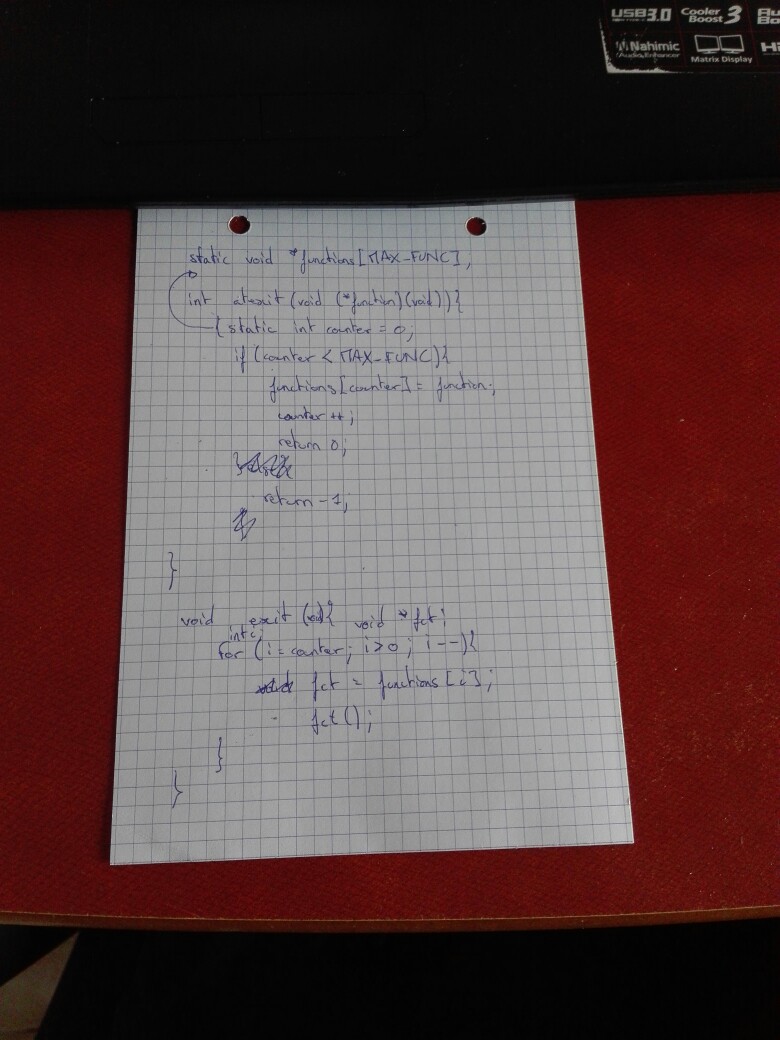 USB3.0 Cooler Boost 3
Nahimic Audio Enhancer Matrix Display Hi
static void *functions[MAX-FUNC],
int atexit(void (*function)(void)){
{ static int counter = 0;
if (counter < MAX-FUNC){
functions[counter] = function;
counter ++;
return 0;
}
return -1;
}
void exit (void){ void *fct;
int i;
for (i = counter; i>0; i--){
fct = functions[i];
fct();
}
}